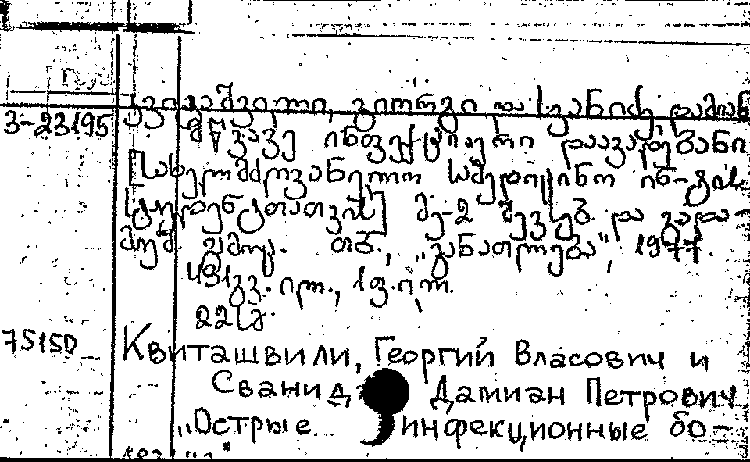 კვიტაშვილი, გიორგი და სვანიძე, დამიან
3-23195
მწვავე ინფექციური დაავადებანი
[სახელმძღვანელო სამედიცინო ინ-ტის
სტუდენტთათვის] მე-2 შევსებ. და გადა-
მუშ. გამოც. თბ., „განათლება“, 1977.
431 გვ. ილ., 1 ფ. ილ.
22 სმ.
75150 Квиташвили, Георгий Власович и
Дамиан Петрович
„Острые инфекционные бо-